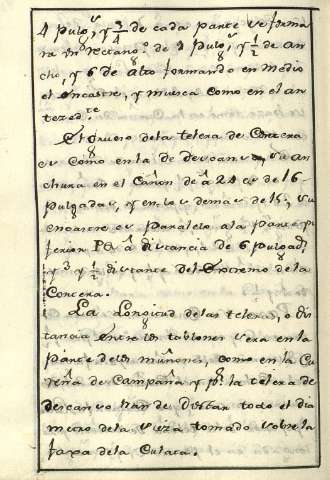 4 pulgs. y 3/4 de cada parte se forma
ra un rectango. de 9 pulgs. y 1/2 de an
cho, y 6 de alto formando en medio
el encastre, y muesca como en el an
teced.te
El grueso dela telera de Contera
es como en la de descanso su an
chura en el Cañon de â 24 es de 16
pulgadas, y en los demas de 15; su
encastre es paralelo ala parte su
perior PQ â distancia de 6 pulgad.s
y 3 y 1/2 distante del Extremo dela
Contera.
La Longitud delas teleras, o dis
tancia Entre los tablones sera en la
parte de los muñones, como en la Cu
reña de Campaña y pa. la telera de
descanso han de Distar todo el dia
metro dela Pieza tomado sobre la
faxa dela Culata.